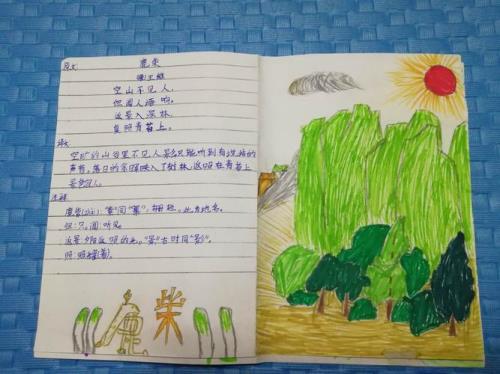 原文 鹿柴
唐 王维
空山不见人,
但闻人语响。
返景入深林,
复照青苔上。
译文
空旷的山谷里不见人影只能听到有说话的
声音,落日的余晖映入了树林,又照在青苔上
景宜人。
注释
鹿柴(zhài):"柴"同"寨",栅栏。此为地名。
但:只。闻:听见。
返景:夕阳返照的光。"景"古时同"影"。
照:照耀(着)。
鹿柴